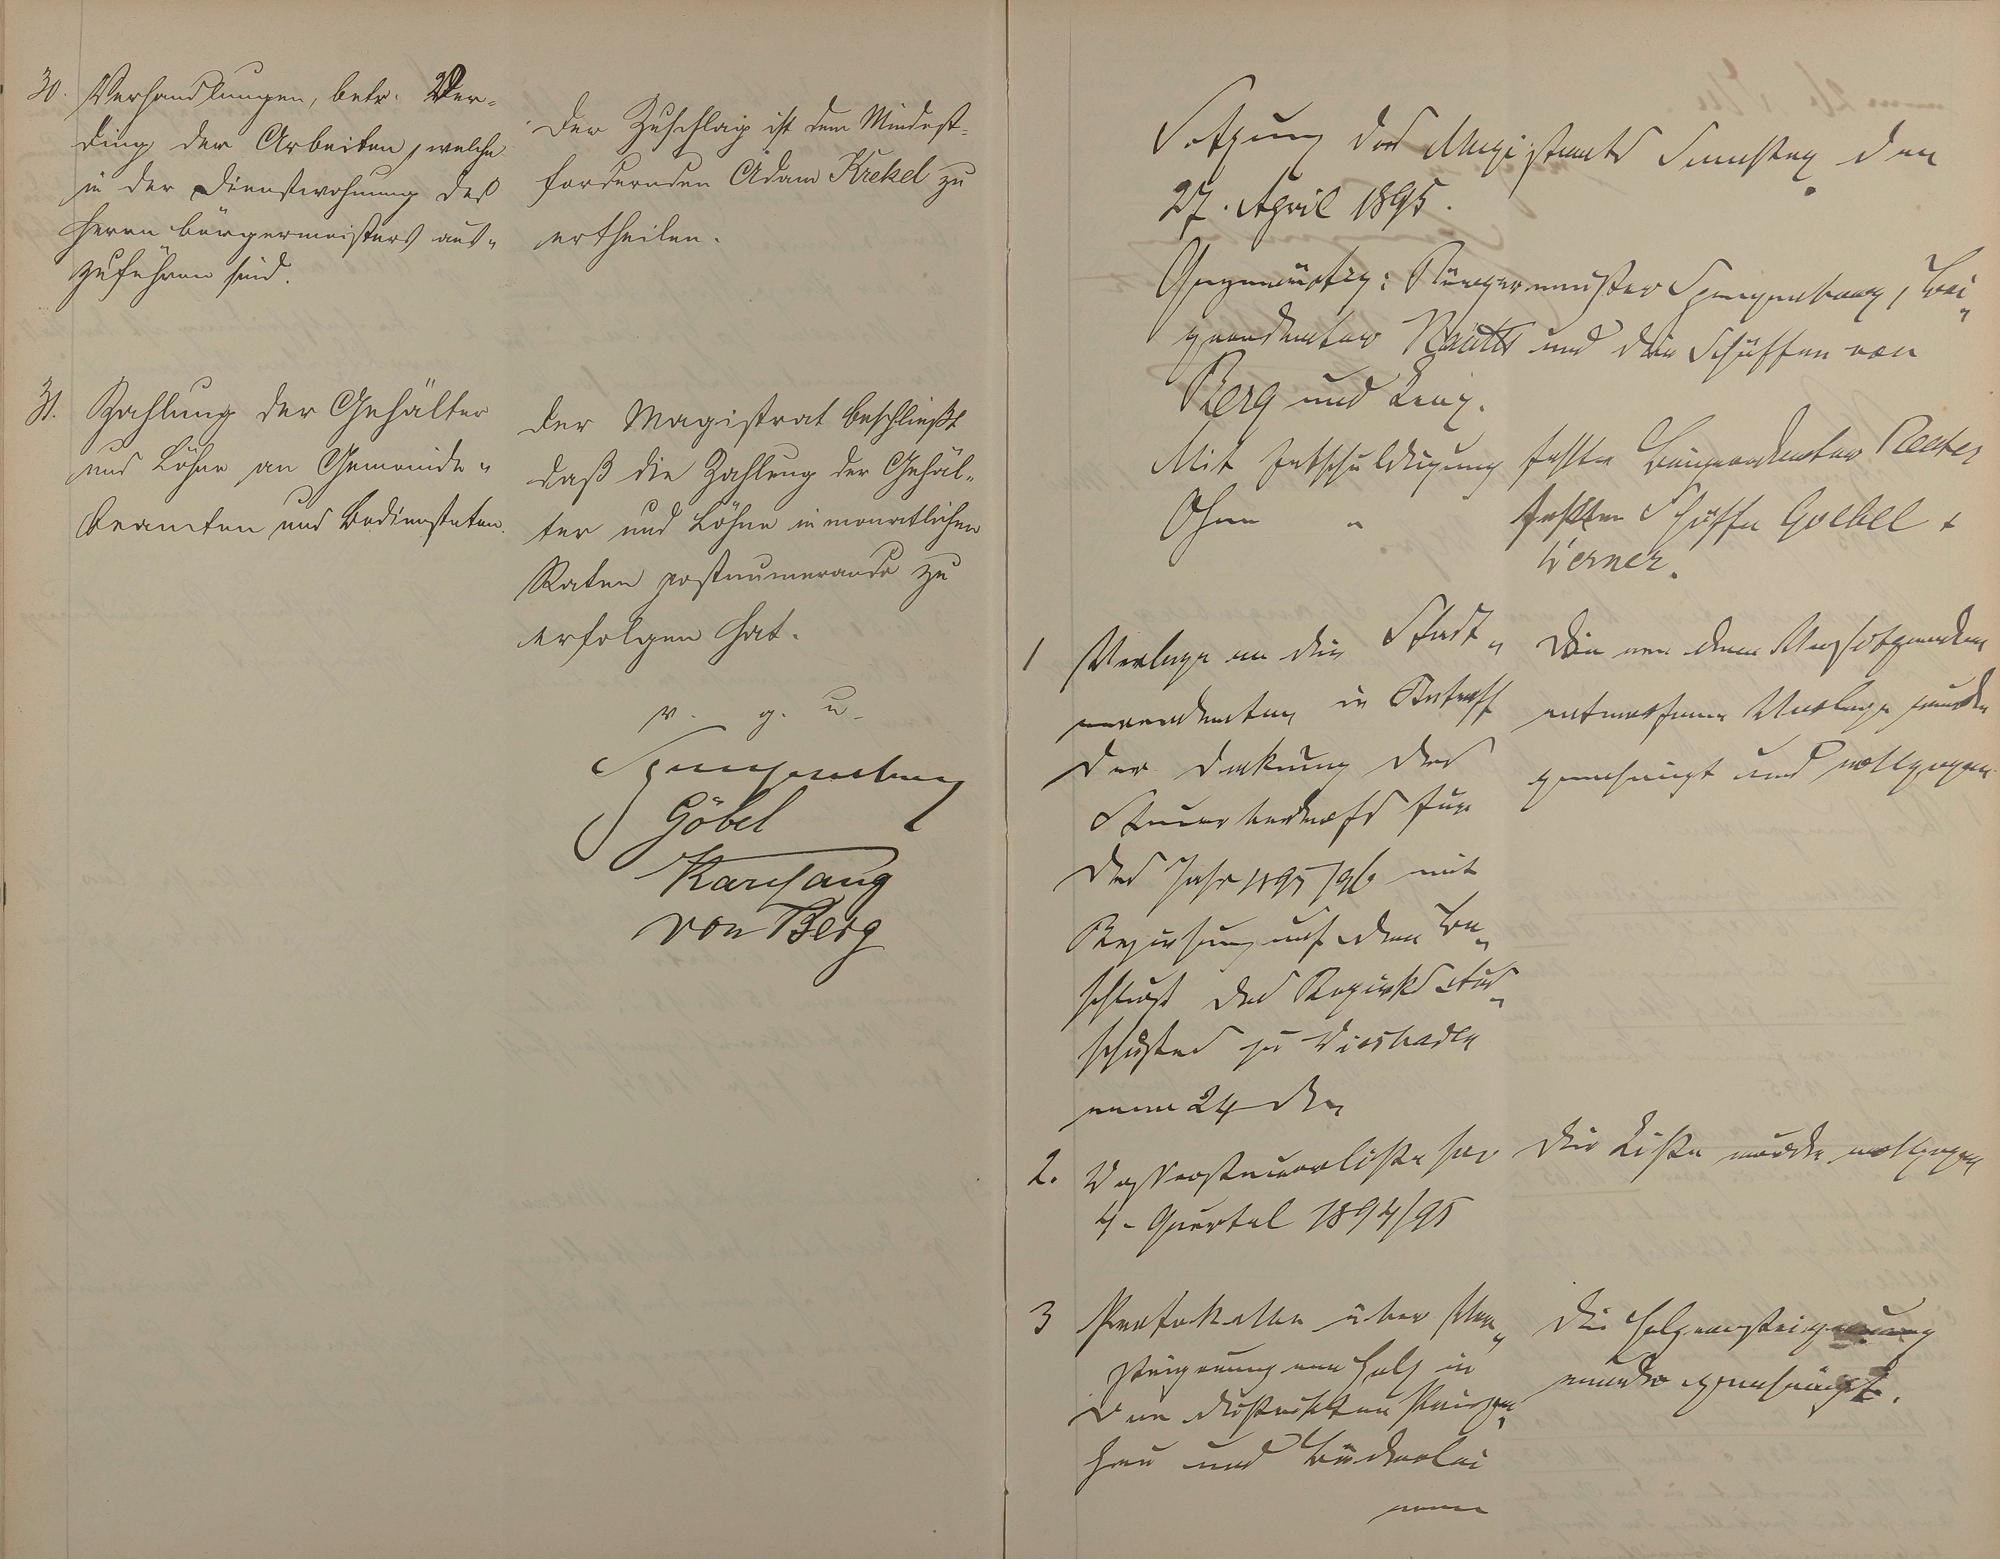 30. Verhandlungen, betr. Ver-
ding der Arbeiten, welche
in der Dienstwohnung des
Herrn Bürgermeisters aus-
zuführen sind.
Der Zuschlag ist dem Mindest-
fordernden Adam Krekel zu
ertheilen.
31. Zahlung der Gehälter
und Löhne an Gemeinde-
beamten und Bediensteten.
Der Magistrat beschließt
daß die Zahlung der Gehäl-
ter und Löhne in monatlichen
Raten postnumerando zu
erfolgen hat.
v. g. u.
Spangenberg
Göbel
von Berg
Sitzung des Magistrats Samstag den
27. April 1895.
Gegenwärtig: Bürgermeister Spangenberg, Bei-
geordneter und die Schöffen von
Berg und
Mit Entschuldigung fehlte Beigeordneter
Ohne " fehlten Schöffe Goebel +
Werner.
1 Vorlage an die Stadt-
verordneten in Betreff
der Deckung des
Steuerbedarfs für
das Jahr 1895/96 mit
Beziehung auf den Be-
schluß des Bezirks Aus-
schusses zu Wiesbaden
vom 24 d M
Die von dem Vorsitzenden
entworfene Vorlage wurde
genehmigt und vollzogen
2. Wassersteuerliste per
4. Quartal 1894/95
Die Liste wurde vollzogen
3 Protokolle über Ver-
steigerung von Holz in
den Distrikten
hau und
vom
Die Holzversteigerung
wurde genehmigt.